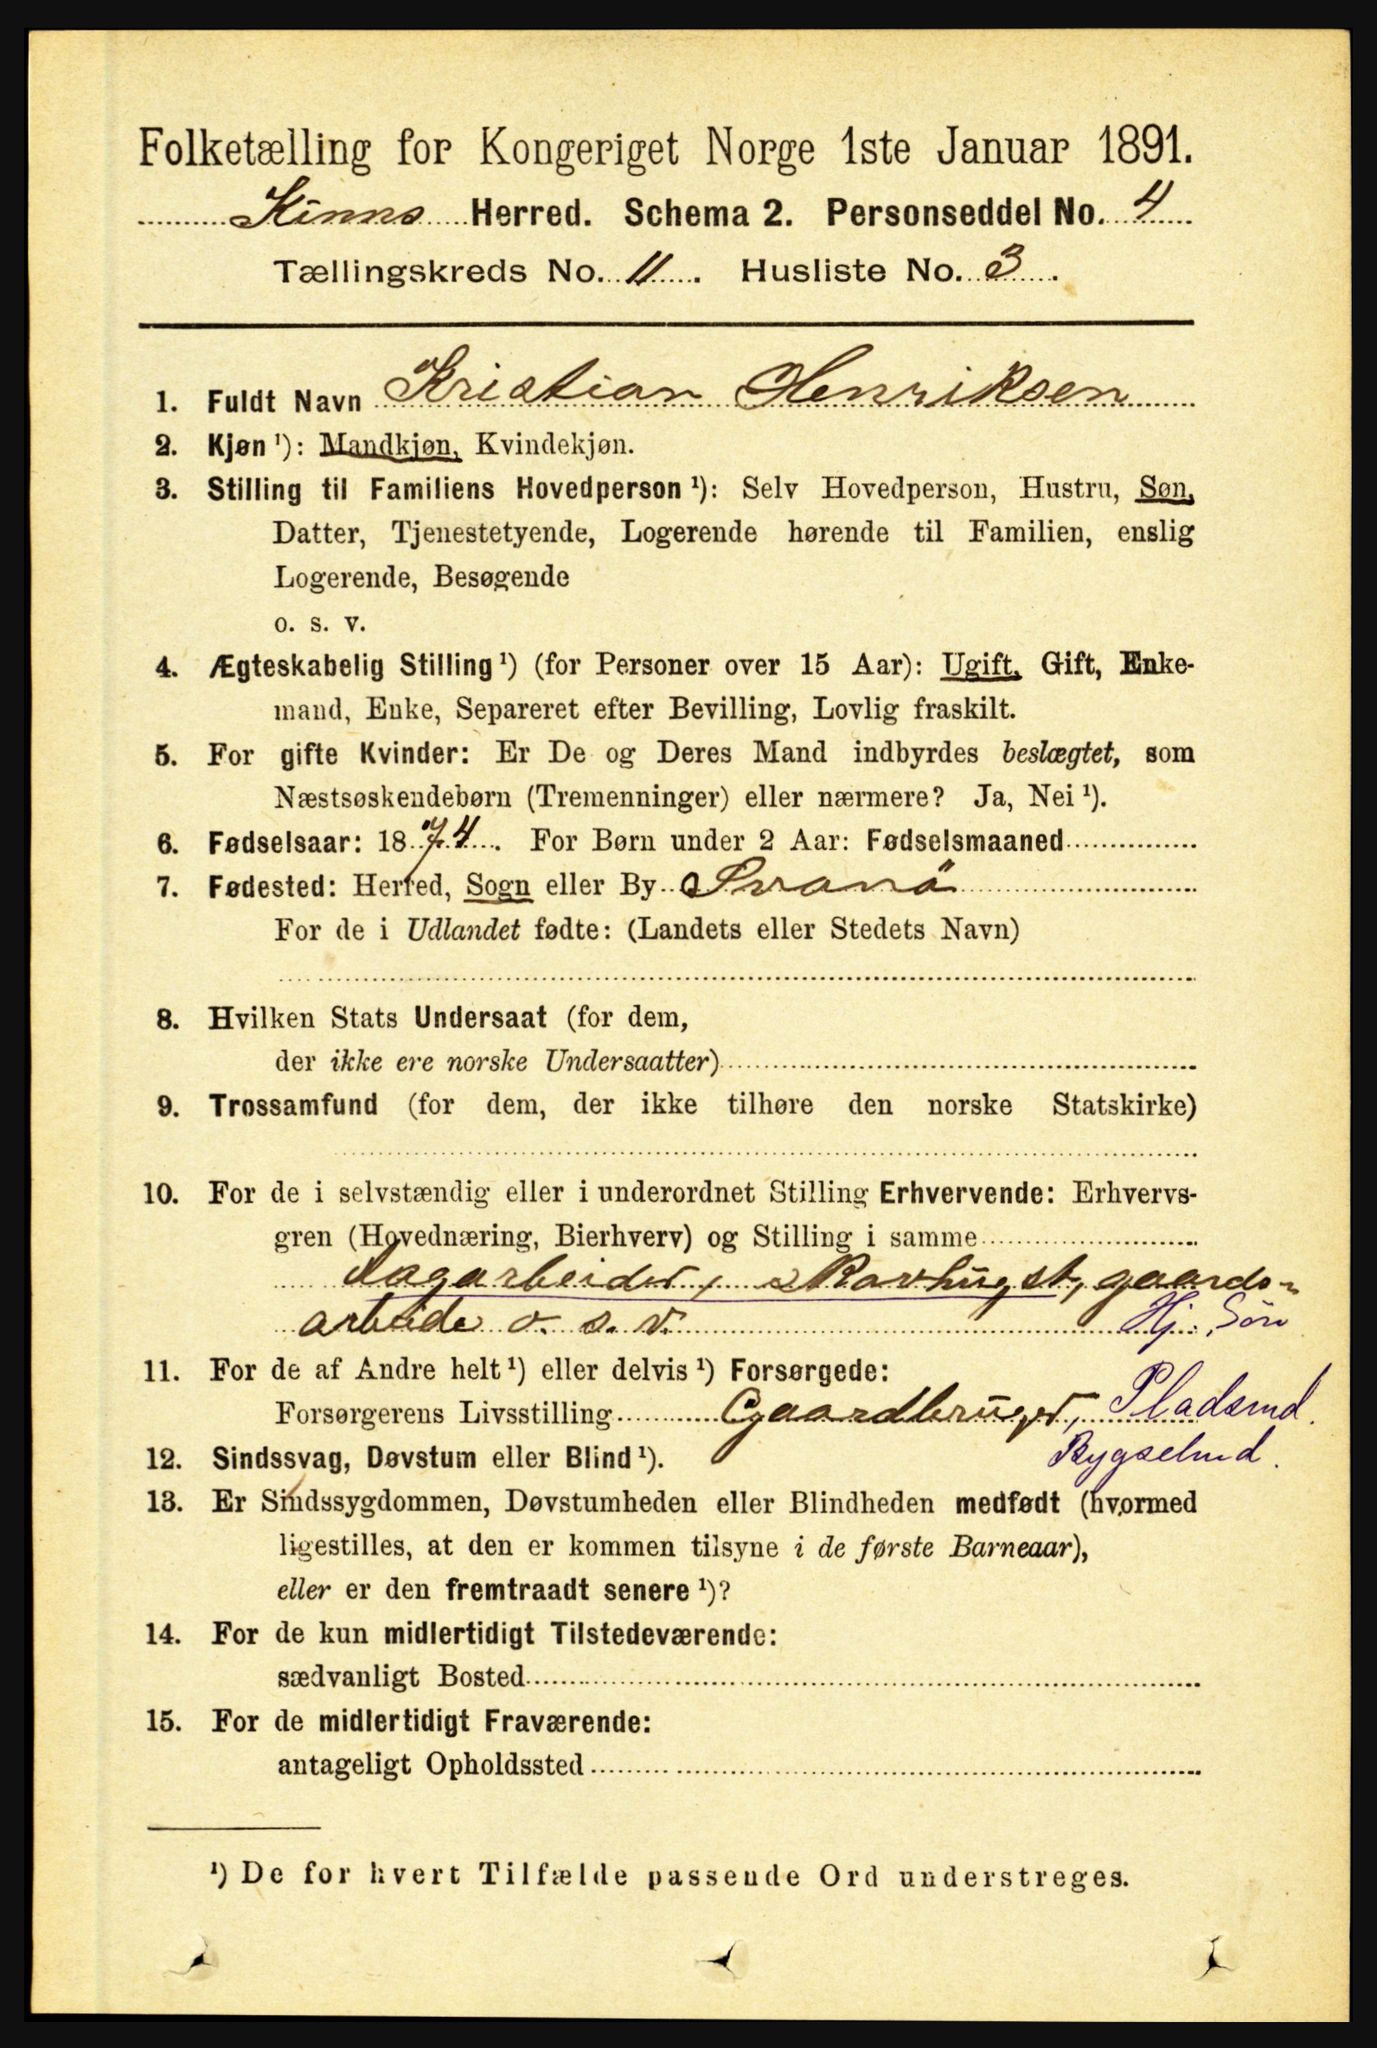 Folketælling for Kongeriget Norge 1ste Januar 1891.
Kinns Herred. Schema 2. Personseddel No. 4
Tællingskreds No. 11. Husliste No. 3.
1. Fuldt Navn Kristian Henriksen
2. Kjøn ¹): Mandkjøn, Kvindekjøn.
3. Stilling til Familiens Hovedperson ¹): Selv Hovedperson, Hustru, Søn,
Datter, Tjenestetyende, Logerende hørende til Familien, enslig
Logerende, Besøgende
o. s. v.
4. Ægteskabelig Stilling ¹) (for Personer over 15 Aar): Ugift, Gift, Enke-
mand, Enke, Separeret efter Bevilling, Lovlig fraskilt.
5. For gifte Kvinder: Er De og Deres Mand indbyrdes beslægtet, som
Næstsøskendebørn (Tremenninger) eller nærmere? Ja, Nei ¹).
6. Fødselsaar: 1874. For Børn under 2 Aar: Fødselsmaaned
7. Fødested: Herred, Sogn eller By Svanö
For de i Udlandet fødte: (Landets eller Stedets Navn)
8. Hvilken Stats Undersaat (for dem,
der ikke ere norske Undersaatter)
9. Trossamfund (for dem, der ikke tilhøre den norske Statskirke)
10. For de i selvstændig eller i underordnet Stilling Erhvervende: Erhvervs-
gren (Hovednæring, Bierhverv) og Stilling i samme
Sagarbeider, Skovhugst, gaards-
arbeide o. s. v. Hj. Sön
11. For de af Andre helt ¹) eller delvis ¹) Forsørgede:
Forsørgerens Livsstilling Gaardbruger, Pladsmd.
Bygselmd.
12. Sindssvag, Døvstum eller Blind ¹).
13. Er Sindssygdommen, Døvstumheden eller Blindheden medfødt (hvormed
ligestilles, at den er kommen tilsyne i de første Barneaar),
eller er den fremtraadt senere ¹)?
14. For de kun midlertidigt Tilstedeværende:
sædvanligt Bosted
15. For de midlertidigt Fraværende:
antageligt Opholdssted
¹) De for hvert Tilfælde passende Ord understreges.